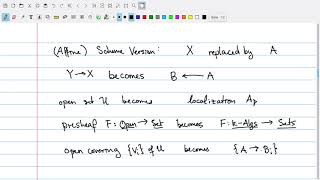 (Affine) Scheme Version: X replaced by A
Y → X becomes B ← A
open set U becomes localization A_p
presheaf F: Open → Set becomes F: k-Algs → Sets
open covering {V_i} of U becomes {A → B_i}